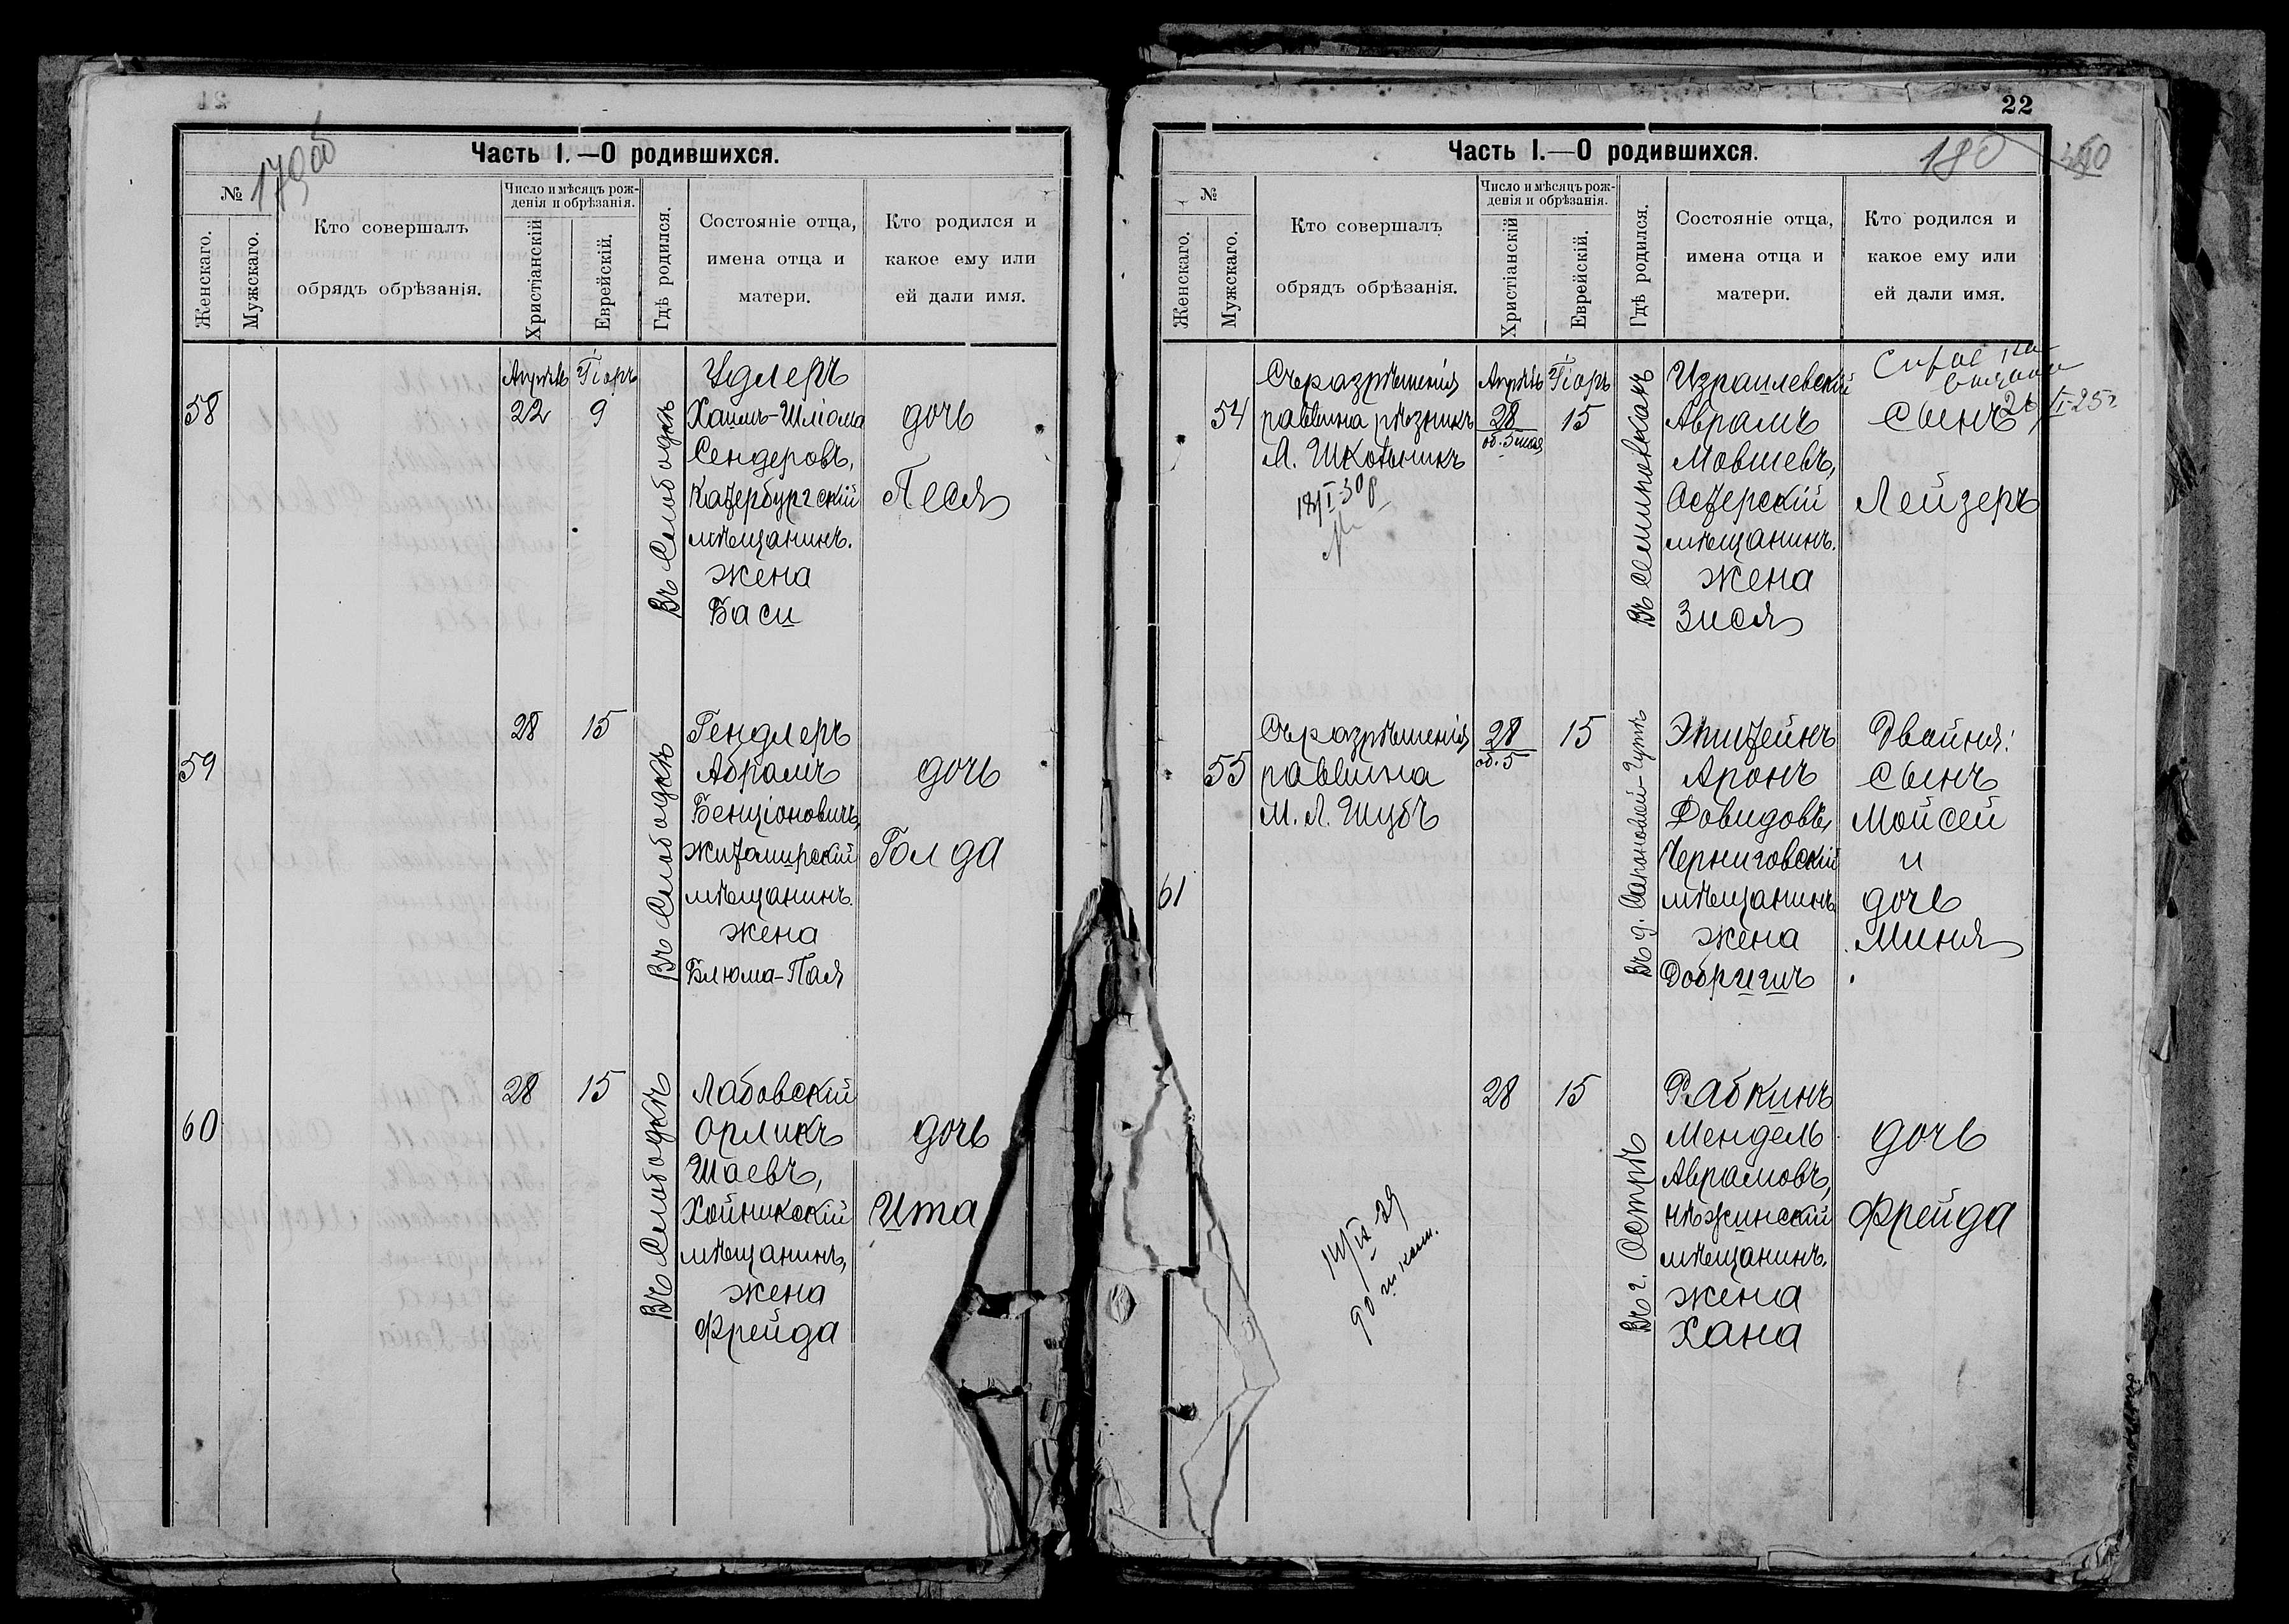 179 об
Часть I.—О родившихся.
№
Женскаго.
Мужскаго.
Кто совершалъ
обрядъ обрѣзанія.
Число и мѣсяцъ рож-
денія и обрѣзанія.
Христіанскій
Еврейскій.
Гдѣ родился.
Состояніе отца,
имена отца и
матери.
Кто родился и
какое ему или
ей дали имя.
58
Апрѣль
22
Ііоръ
9
Въ Слободкѣ
Удлеръ
Хаимъ-Шліома
Сендеровъ,
Катербургскій
мѣщанинъ.
жена
Бася
дочь
Песя
59
28
15
Въ Слободкѣ
Гендлеръ
Абрамъ
Бенціоновичъ,
Житомирскій
мѣщанинъ.
жена
Блюма-Паля
дочь
Голда
60
28
15
Въ Слободкѣ
Лабовскій
Орликъ
Шаевъ,
Хойникскій
мѣщанинъ,
жена
Фрейда
дочь
Ита
22
180
Часть I.—О родившихся.
№
Женскаго.
Мужскаго.
Кто совершалъ
обрядъ обрѣзанія.
Число и мѣсяцъ рож-
денія и обрѣзанія.
Христіанскій
Еврейскій.
Гдѣ родился.
Состояніе отца,
имена отца и
матери.
Кто родился и
какое ему или
ей дали имя.
54
Съ разрѣшенія
раввина рѣзникъ
Л. Школьникъ
Апрѣль
28
об. 5 мая
Ііоръ
15
Въ Семиповкахъ
Израилевскій
Аврамъ
Мовшевъ,
Остерскій
мѣщанинъ.
жена
Зися
сынъ
Лейзеръ
55
61
Съ разрѣшенія
раввина
М. Л. Шубъ
28
об. 5
15
Эпштейнъ
Аронъ
Довидовъ,
Черниговскій
мѣщанинъ
жена
Добригичъ
Двойня:
сынъ
Мойсей
и
дочь
Миня
14/IX-29
28
15
Въ г. Острѣ
Рабкинъ
Мендель
Аврамовъ,
Нѣжинскій
мѣщанинъ.
жена
Хана
дочь
Фрейда